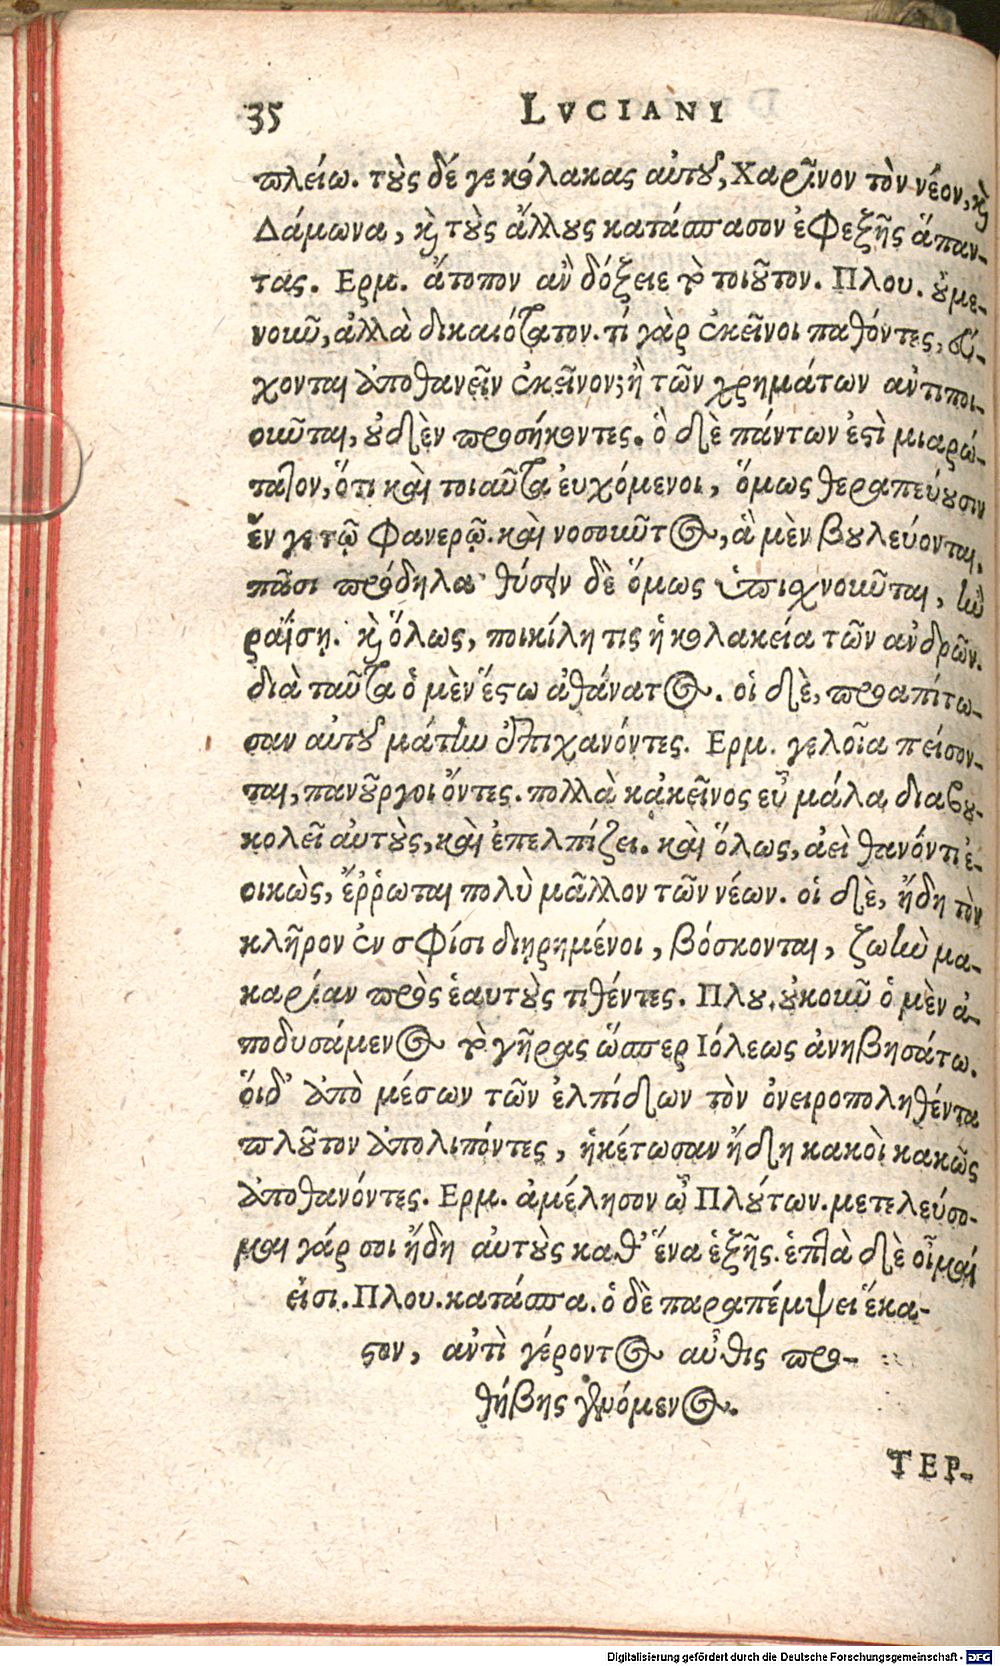 35 LVCIANI
πλείω. τοὺς δέ γε κόλακας αὐτοῦ, Χαρῖνον τὸν νέον, καὶ
Δάμωνα, καὶ τοὺς ἄλλους κατάσπασον ἐφεξῆς ἅπαν-
τας. Ερμ. ἄτοπον ἂν δόξειε τὸ τοιοῦτον. Πλου. οὔμε-
νοιοῦν, ἀλλὰ δικαιότατον. τί γὰρ ἐκεῖνοι παθόντες, εὔ-
χονται ἀποθανεῖν ἐκεῖνον; ἢ τῶν χρημάτων ἀντιποι-
οῦνται, οὐδὲν προσήκοντες. ὃ δὲ πάντων ἐστὶ μιαρώ-
τατον, ὅτι καὶ τοιαῦτα εὐχόμενοι, ὅμως θεραπεύουσιν
ἔν γε τῷ φανερῷ. καὶ νοσοῦντος, ἃ μὲν βουλεύονται,
πᾶσι πρόδηλα· θύσειν δὲ ὅμως ὑπισχνοῦνται, ἢν
ῥαΐσῃ. καὶ ὅλως, ποικίλη τις ἡ κολακεία τῶν ἀνδρῶν.
διὰ ταῦτα ὁ μὲν ἔστω ἀθάνατος. οἱ δὲ, προαπίτω-
σαν αὐτοῦ μάτην ἐπιχανόντες. Ερμ. γελοῖα πείσον-
ται, πανοῦργοι ὄντες. πολλὰ κἀκεῖνος εὖ μάλα διαβου-
κολεῖ αὐτοὺς, καὶ ἐπελπίζει. καὶ ὅλως, ἀεὶ θανόντι ἐ-
οικὼς, ἔῤῥωται πολὺ μᾶλλον τῶν νέων. οἱ δὲ, ἤδη τὸν
κλῆρον ἐν σφίσι διῃρημένοι, βόσκονται, ζωὴν μα-
καρίαν πρὸς ἑαυτοὺς τιθέντες. Πλου. οὐκοῦν ὁ μὲν ἀ-
ποδυσάμενος τὸ γῆρας ὥσπερ Ιόλεως ἀνηβησάτω.
ὅιδ' ἀπὸ μέσων τῶν ἐλπίδων τὸν ὀνειροποληθέντα
πλοῦτον ἀπολιπόντες, ἡκέτωσαν ἤδη κακοὶ κακῶς
ἀποθανόντες. Ερμ. ἀμέλησον ὦ Πλούτων. μετελεύσο-
μαι γάρ σοι ἤδη αὐτοὺς καθ' ἕνα ἑξῆς. ἑπτὰ δὲ οἶμαί
εἰσι. Πλου. κατάσπα. ὁ δὲ παραπέμψει ἕκα-
στον, ἀντὶ γέροντος αὖθις πρω-
θήβης γενόμενος.
ΤΕΡ-
Digitalisierung gefördert durch die Deutsche Forschungsgemeinschaft - DFG